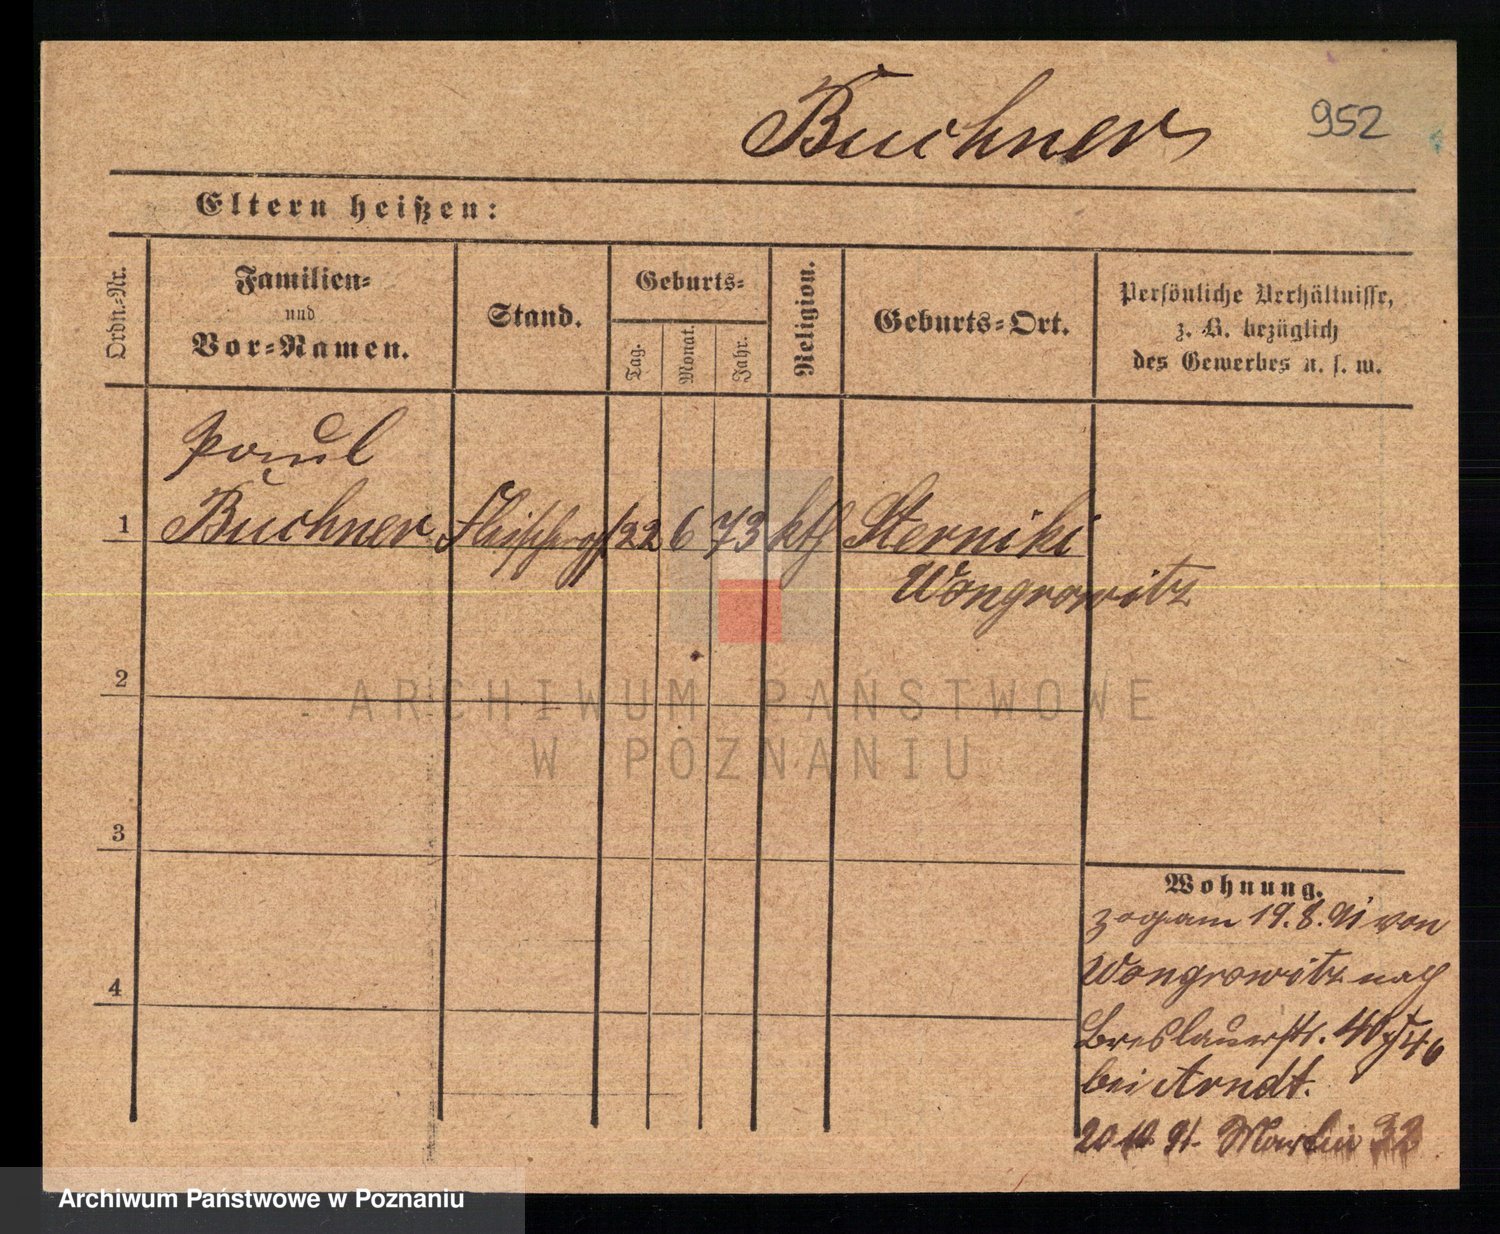 Buchner
952
Eltern heißen:
Ordn.-Nr.
Familien-
und
Vor-Namen.
Stand.
Geburts-
Tag.
Monat.
Jahr.
Religion.
Geburts-Ort.
Persönliche Verhältnisse,
z. B. bezüglich
des Gewerbes u. s. w.
Paul
1 Buchner Fleischergs 22 6 73 kth Sterniki
Wongrowitz
2
ARCHIWUM PAŃSTWOWE
W POZNANIU
3
Wohnung.
zog am 19.8.91 von
Wongrowitz nach
4
Breslauerstr. 40
bei Arndt.
20 10 91. Martin 33
Archiwum Państwowe w Poznaniu